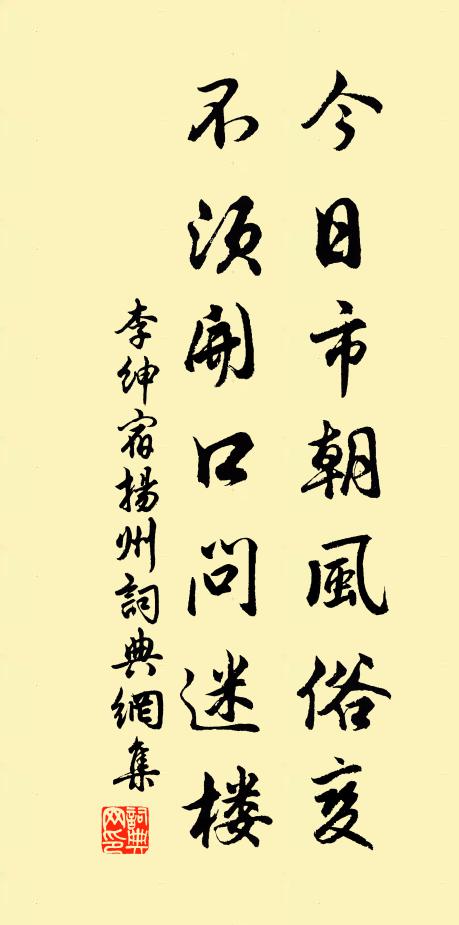 今日市朝風俗变
不须開口问迷楼
李紳宿揚州詞典網集
詞典网印